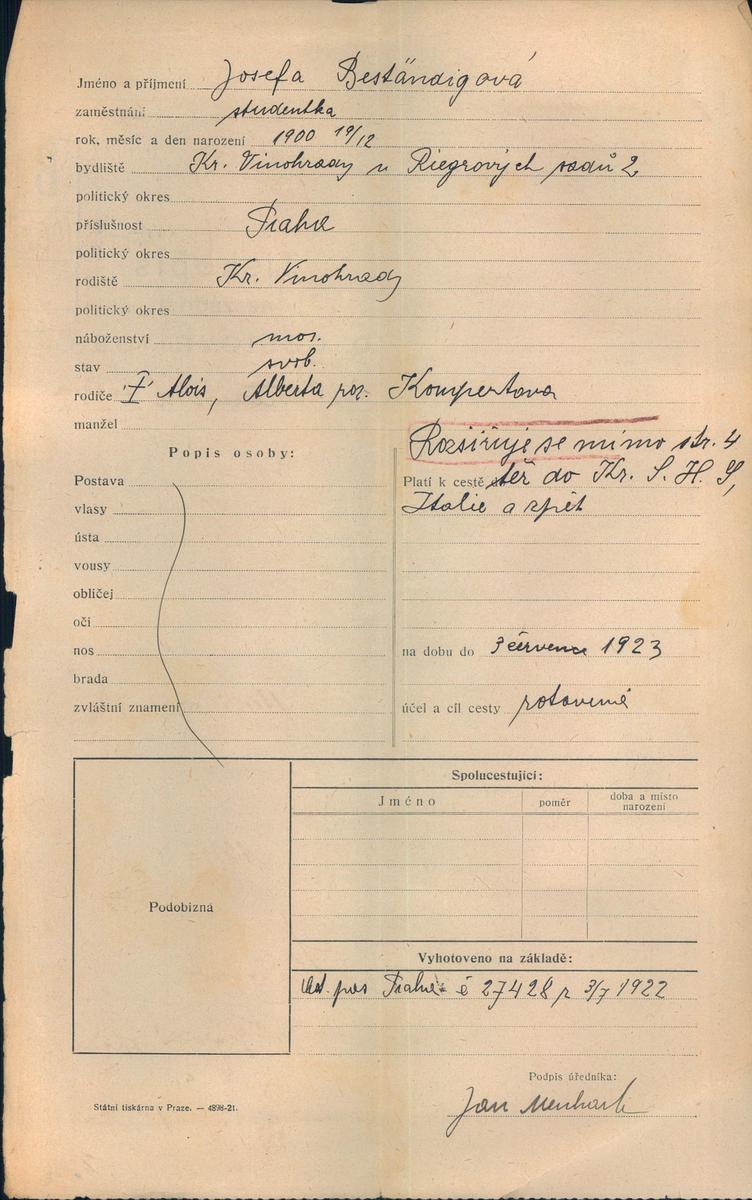 Jméno a příjmení Josefa Beständigová
zaměstnání studentka
rok, měsíc a den narození 1900 19/12
bydliště Kr. Vinohrady u Riegrových sadů 2
politický okres
příslušnost Praha
politický okres
rodiště Kr. Vinohrady
politický okres
náboženství mos.
stav svob.
rodiče † Alois, Alberta roz. Kompertova
manžel
Popis osoby:
Postava
vlasy
ústa
vousy
obličej
oči
nos
brada
zvláštní znamení
Rozšiřuje se mimo str. 4
Platí k cestě též do Kr. S. H. S,
Italie a zpět
na dobu do 3 července 1923
účel a cíl cesty zotavená
Podobizna
Spolucestující:
Jméno poměr doba a místo narození
Vyhotoveno na základě:
pas Praha č 27428 z 3/7 1922
Podpis úředníka:
Jan
Státní tiskárna v Praze. — 4898-21.